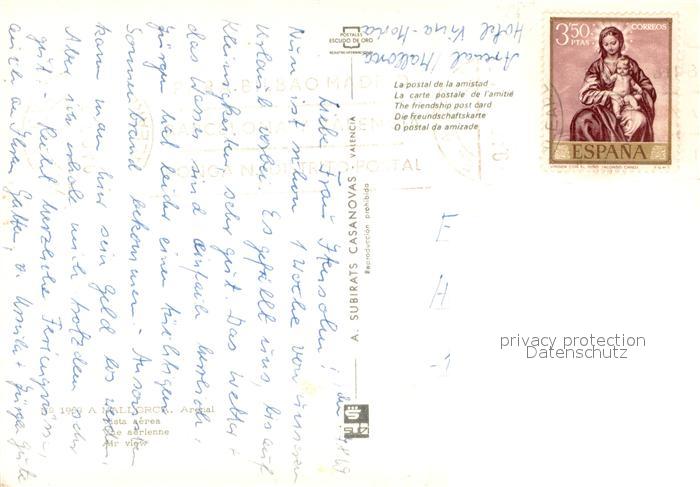 Arenal Mallorca
Hotel
POSTALES
ESCUDO DE ORO
3,50
PTAS
CORREOS
ESPAÑA
La postal de la amistad
La carte postale de l'amitié
The friendship post card
Die Freundschaftskarte
O postal da amizade
A. SUBIRATS CASANOVAS - VALENCIA
Reproducción prohibida
Liebe Frau
Nun ist schon 1 Woche von unserem
Urlaub vorbei. Es gefällt uns, bis auf
Kleinigkeiten sehr gut. Das Wetter +
das Wasser sind einfach herrlich,
Jürgen hat leider einen kräftigen
Sonnenbrand bekommen. - Ansonsten
kann man hier sein Geld los werden,
Aber ich erhole mich trotzdem sehr
gut. - Recht herzliche Feriengrüsse,
auch an Ihren Gatten, v. Ursula + Jürgen
A MALLORCA. Arenal
Vista aérea
Vue aérienne
Air view
privacy protection
Datenschutz